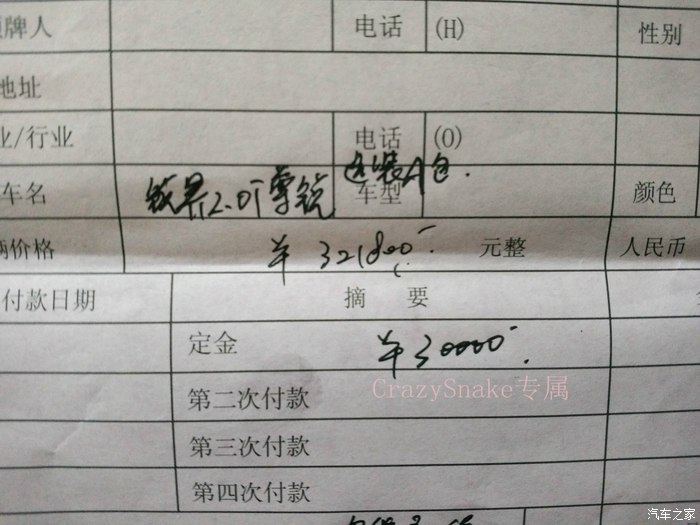 牌人 电话 (H) 性别
地址
业/行业 电话 (O)
选装A包.
车名 锐界2.0T尊锐 车型 颜色
辆价格 ¥321800 元整 人民币
付款日期 摘 要
定金 ¥30000.
CrazySnake专属
第二次付款
第三次付款
第四次付款
汽车之家